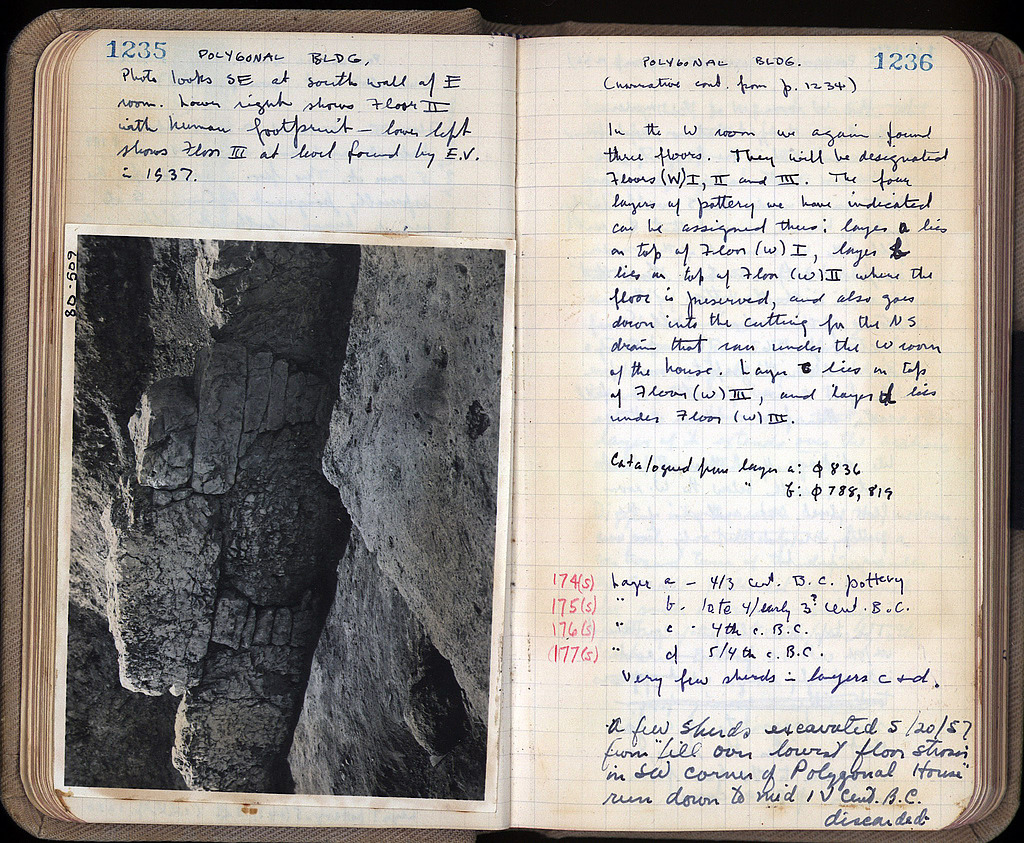 1235 POLYGONAL BLDG.
Photo looks SE at south wall of E
room. Lower right shows Floor II
with human footprint – lower left
shows Floor III at level found by E.V.
in 1937.
80-509
POLYGONAL BLDG. 1236
(narrative cont. from p. 1234)
In the W room we again found
three floors. They will be designated
Floors (W) I, II and III. The four
layers of pottery we have indicated
can be assigned thus: layer a lies
on top of Floor (W) I, layer b
lies on top of Floor (W) II where the
floor is preserved, and also goes
down into the cutting for the NS
drain that ran under the W room
of the house. Layer c lies on top
of Floor (W) III, and layer d lies
under Floor (W) III.
Catalogued from layer a: φ 836
" b: φ 788, 819
174(s) Layer a – 4/3 cent. B.C. pottery
175(s) " b - late 4/early 3? cent. B.C.
176(s) " c - 4th c. B.C.
177(s) " d 5/4th c. B.C.
Very few sherds in layers c + d.
A few sherds excavated 5/20/57
from "fill over lowest floor strosis
in SW corner of Polygonal House"
run down to mid IV cent. B.C.
discarded